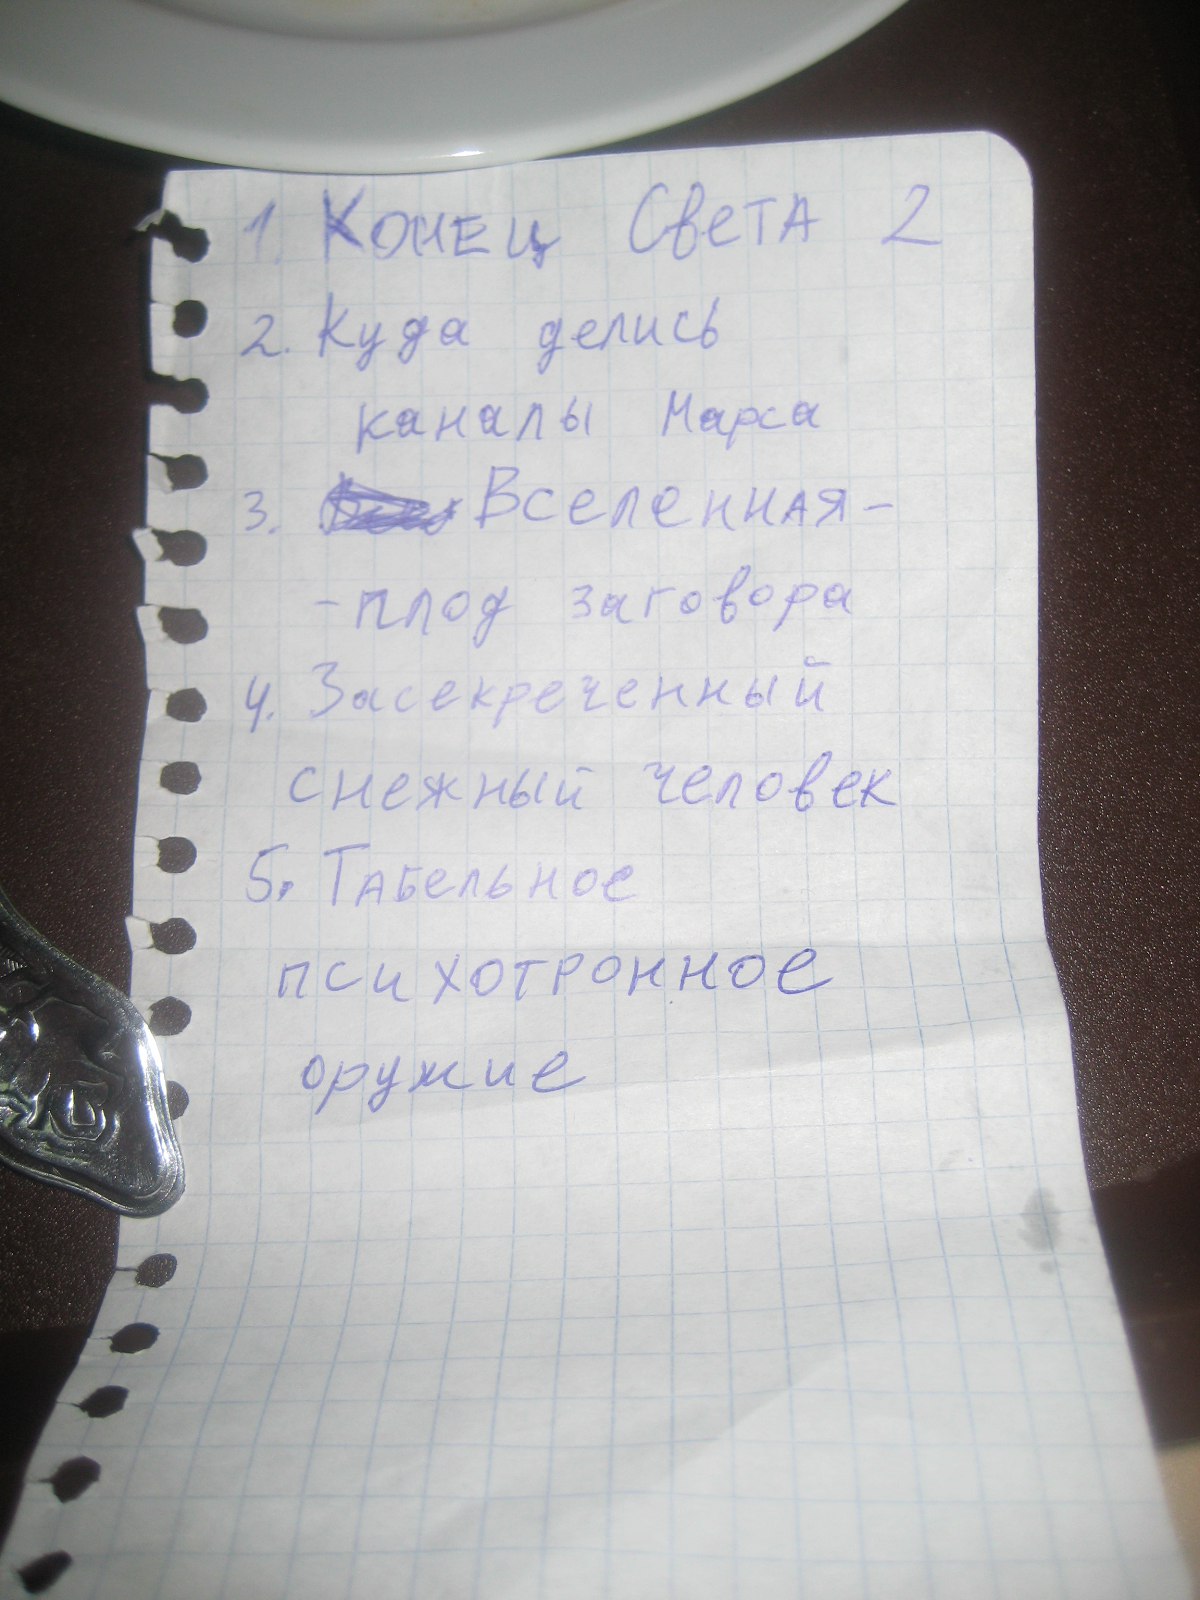 1. Конец Света 2
2. Куда делись
каналы Марса
3. Вселенная -
- плод заговора
4. Засекреченный
снежный человек
5. Табельное
психотронное
оружие